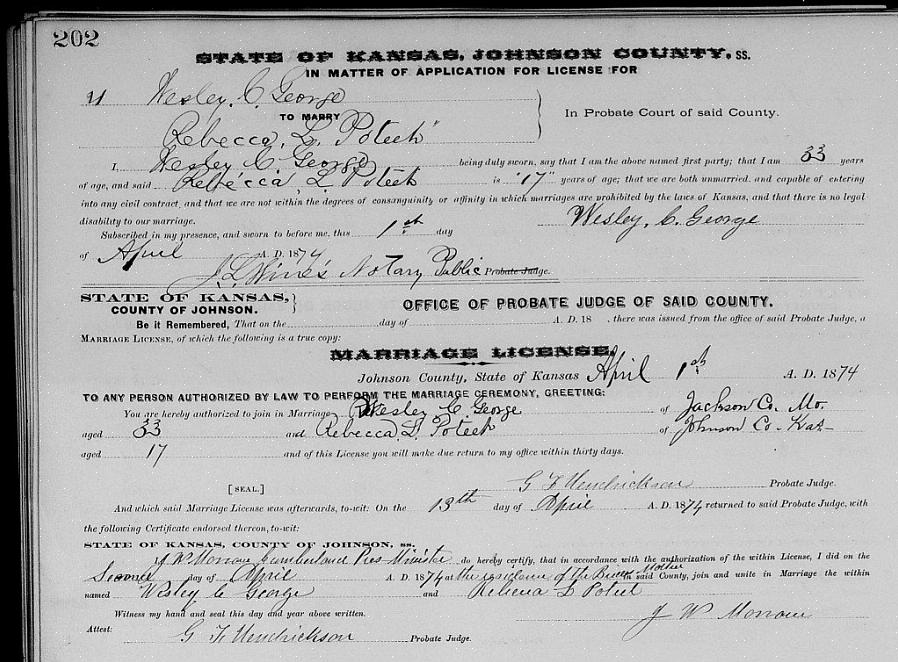 202
STATE OF KANSAS, JOHNSON COUNTY, ss.
IN MATTER OF APPLICATION FOR LICENSE FOR
Wesley. C. George
TO MARRY
Rebecca, L. Poteet"
In Probate Court of said County.
I, Wesley C George being duly sworn, say that I am the above named first party; that I am 33 years
of age, and said Rebecca L Poteet is "17" years of age; that we are both unmarried, and capable of entering
into any civil contract, and that we are not within the degrees of consanguinity or affinity in which marriages are prohibited by the laws of Kansas, and that there is no legal
disability to our marriage. Wesley, C. George
Subscribed in my presence, and sworn to before me, this 1st day
of April A. D. 1874
Notary Public Probate Judge.
STATE OF KANSAS, } OFFICE OF PROBATE JUDGE OF SAID COUNTY.
COUNTY OF JOHNSON.
Be it Remembered, That on the day of A. D. 18 , there was issued from the office of said Probate Judge, a
MARRIAGE LICENSE, of which the following is a true copy:
MARRIAGE LICENSE.
Johnson County, State of Kansas April 1st A. D. 1874
TO ANY PERSON AUTHORIZED BY LAW TO PERFORM THE MARRIAGE CEREMONY, GREETING:
You are hereby authorized to join in Marriage Wesley C. George of Jackson Co, Mo.
aged 33 and Rebecca L. Poteet of Johnson Co- Kas-
aged 17 and of this License you will make due return to my office within thirty days.
G F Hendrickson Probate Judge.
[SEAL.]
And which said Marriage License was afterwards, to-wit: On the 13th day of April A. D. 1874 returned to said Probate Judge, with
the following Certificate endorsed thereon, to-wit:
STATE OF KANSAS, COUNTY OF JOHNSON, ss.
J W Morrow Cumberland Pres Minister do hereby certify, that in accordance with the authorization of the within License, I did on the
Second day of April A. D. 1874 at the residence of the Brides Mother in said County, join and unite in Marriage the within
named Wesley C George and Rebecca L Poteet
Witness my hand and seal this day and year above written. J W Morrow
Attest: G F Hendrickson Probate Judge.